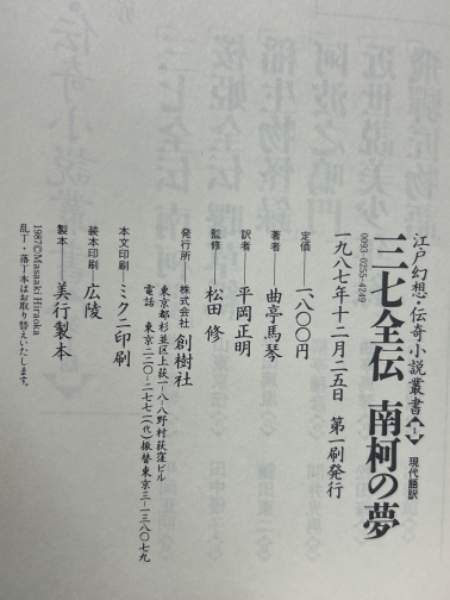 江戸幻想・伝奇小説叢書〈1〉 現代語訳
三七全伝 南柯の夢
0093-0255-4249
一九八七年十二月二五日 第一刷発行
定価──一、八〇〇円
著者──曲亭馬琴
訳者──平岡正明
監修──松田 修
発行所──株式会社 創樹社
東京都杉並区上荻一-八-八野村荻窪ビル
電話 東京二二〇-二七七一(代) 振替東京三-一三八〇七九
本文印刷──ミクニ印刷
装本印刷──広陵
製本──美行製本
1987©Masaaki Hiraoka
乱丁・落丁本はお取り替えいたします。